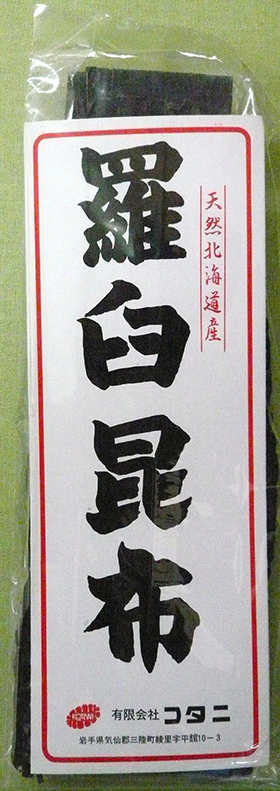 天然北海道産
羅臼昆布
有限会社 コタニ
岩手県気仙郡三陸町綾里字平舘10-3